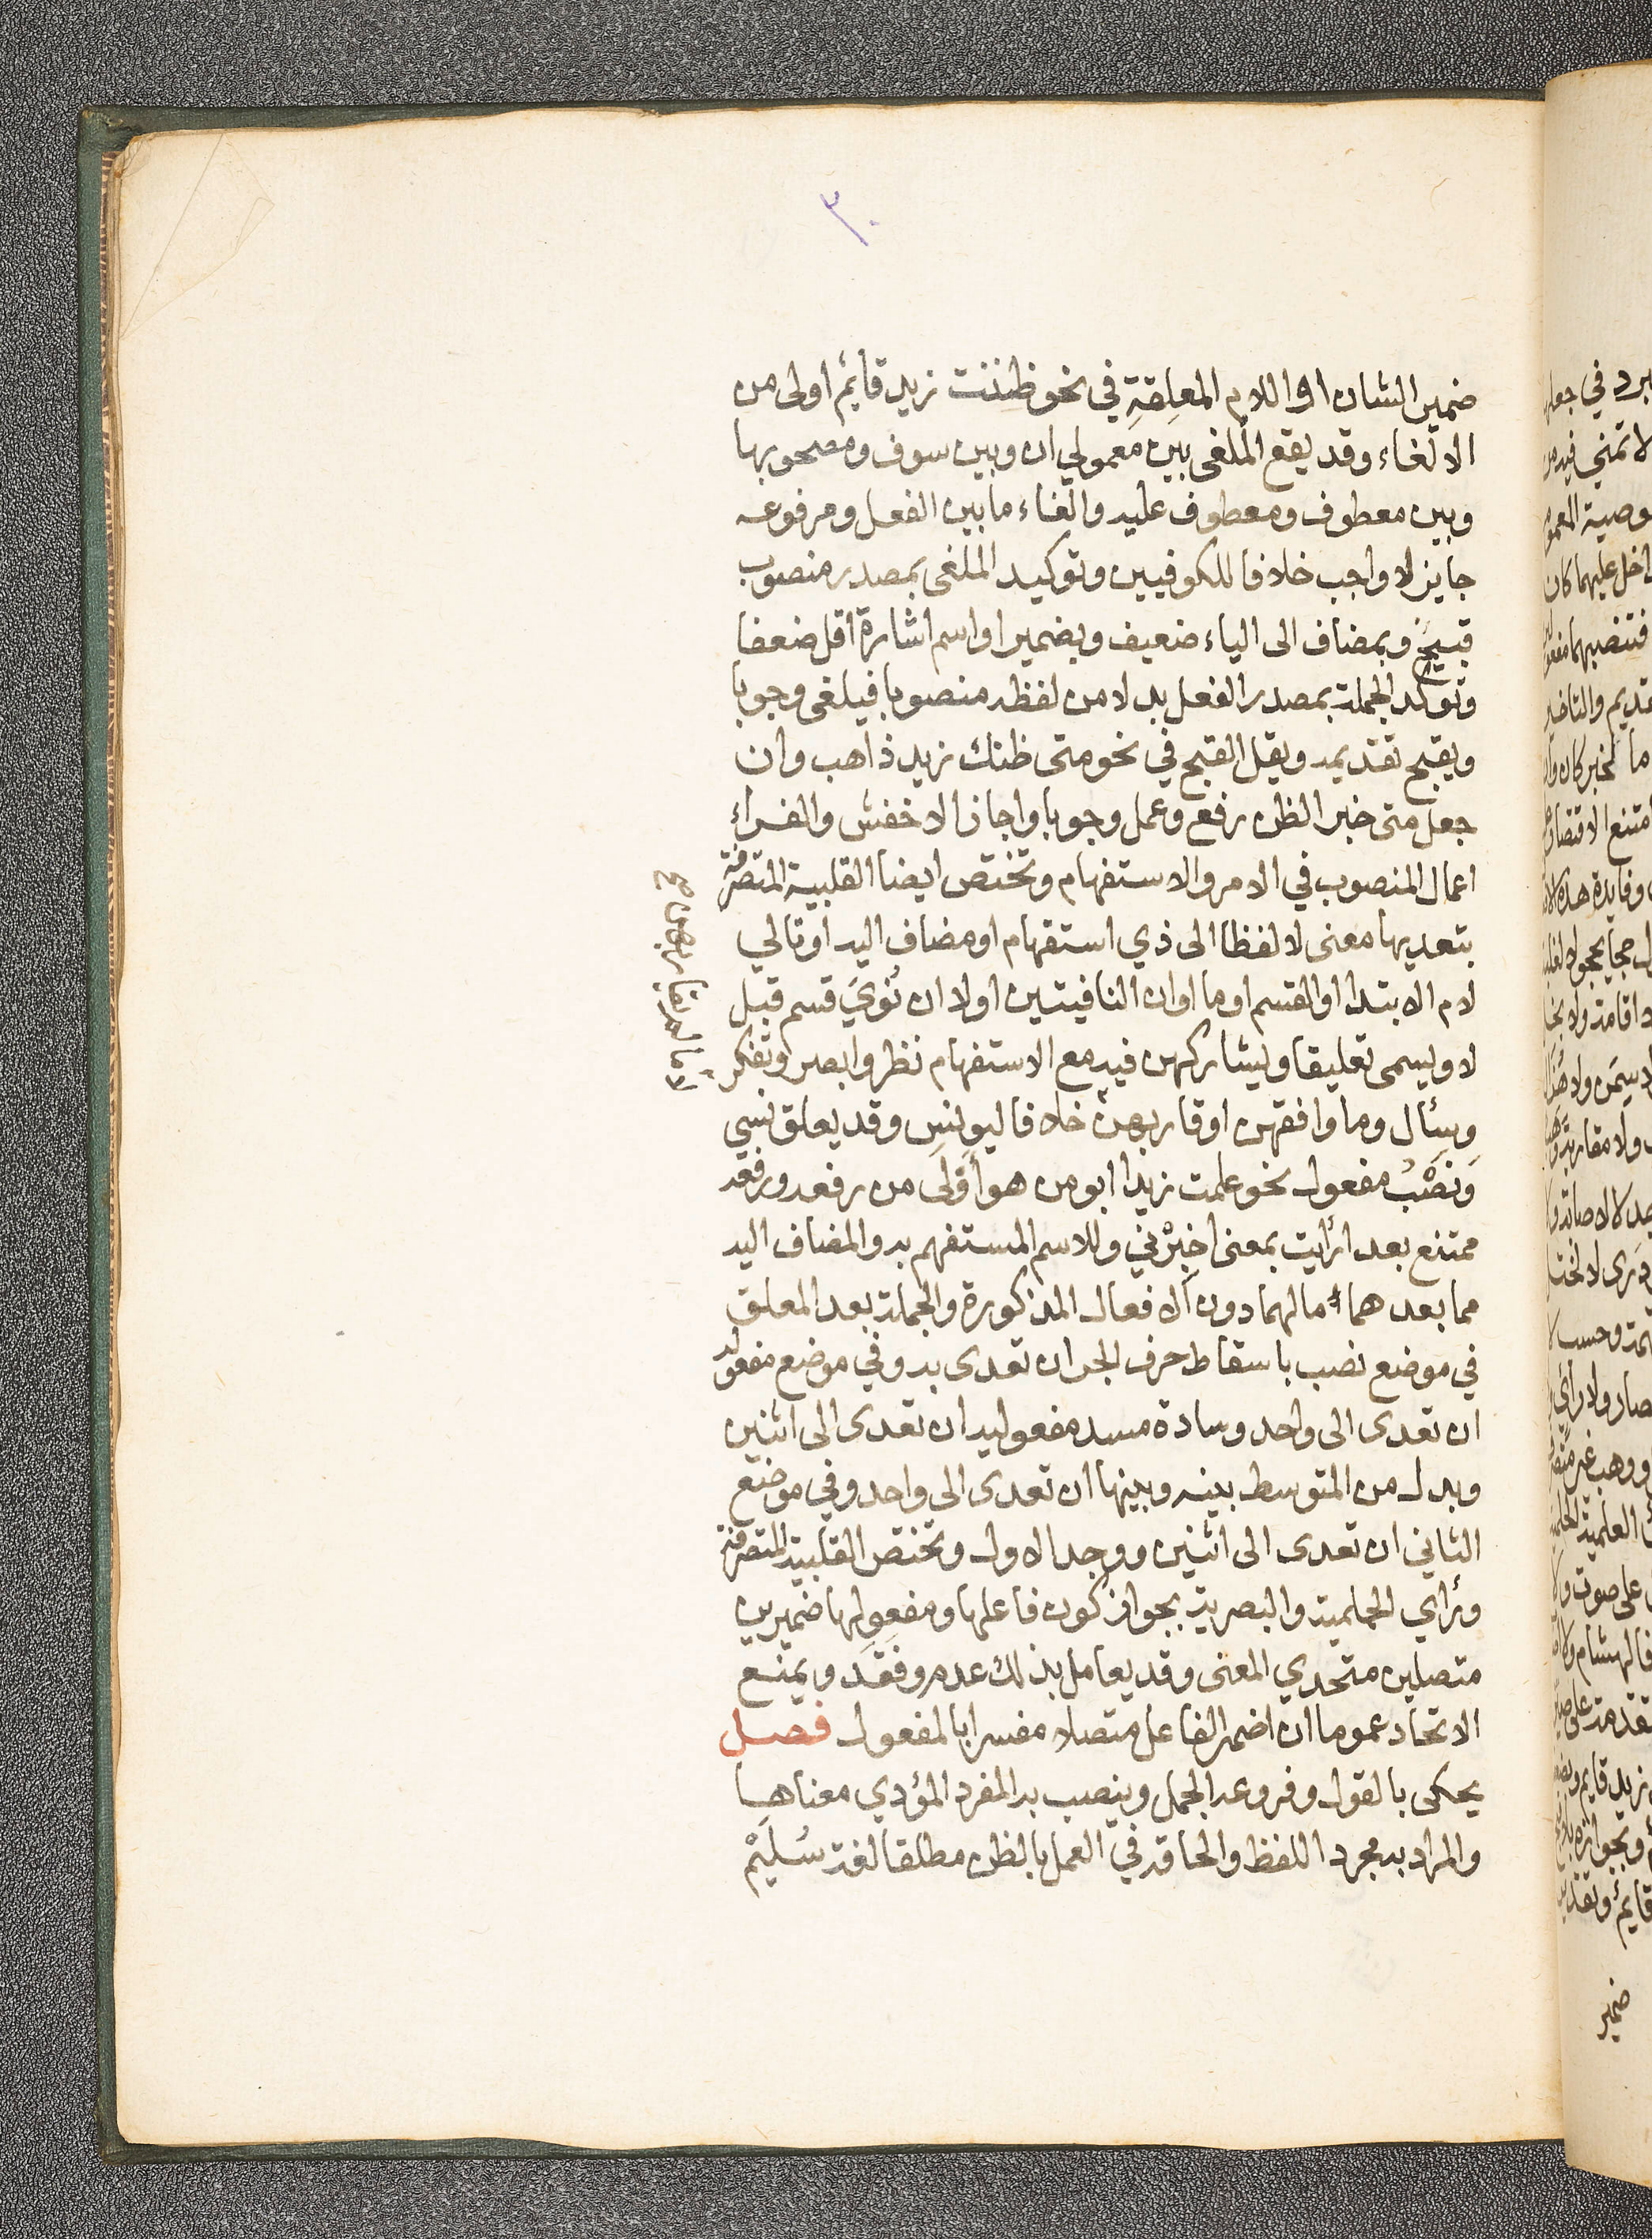 ٣٠
ضمير الشان او اللام المعلِقةِ في نحو ظننت زيد قايم اولى من
الالغاء وقد يقع الملغى بين معمولي ان وبين سوف ومصحوبها
وبين معطوف ومعطوف عليه والغاء ما بين الفعل ومرفوعه
جايز لا واجب خلافا للكوفيين وتوكيد الملغى بمصدر منصوب
قبيح وبمضاف الى الياء ضعيف وبضمير او اسم اشارة اقل ضعفا
وتؤكد الجملة بمصدر الفعل بدلا من لفظه منصوبا فيلغى وجوبا
ويقبح تقديمه ويقل القبح في نحو متى ظنك زيد ذاهب وان
جعل متى خبر الظن رفع وعمل وجوبا واجاز الاخفش والفراء
اعمال المنصوب في الامر والاستفهام وتختص ايضا القلبية المتصرفة
بتعديها معنى لا لفظا الى ذي استفهام او مضاف اليه او تالي
لام الابتدا او القسم او ما او ان النافيتين او لا ان نُويَ قسم قبل
لا ويسمى تعليقا ويشاركهن فيه مع الاستفهام نظر وابصر وتفكر
وسئال وما وافقهن او قاربهن خلافا ليونس وقد يعلق نسي
وَنصْبُ مفعول نحو علمت زيدا ابو من هو أولى من رفعه ورفعه
ممتنع بعد ارأيت بمعنى اخبرْني وللاسم المستفهم به والمضاف اليه
مما بعدهما ما لهما دون الافعال المذكورة والجملة بعد المعلق
في موضع نصب باسقاط حرف الجر ان تعدى به وفي موضع مفعوله
ان تعدى الى واحد وسادة مسد مفعوليه ان تعدى الى اثنين
وبدل من المتوسط بينه وبينها ان تعدى الى واحد وفي موضع
الثاني ان تعدى الى اثنين ووجد الاول وتختص القلبية المتصرفة
ورأي الحلمية والبصرية بجواز كون فاعلها ومفعولها ضميرين
متصلين متحدي المعنى وقد يعامل بذلك عدم وفقد ويمنع
الاتحاد عموما ان اضمر الفاعل متصلا مفسرا بالمفعول فصل
يحكى بالقول وفروعه الجمل وينصب به المفرد المؤدي معناها
والمراد به مجرد اللفظ والحاقه في العمل بالظن مطلقا لغة سُلَيْم
ضمير